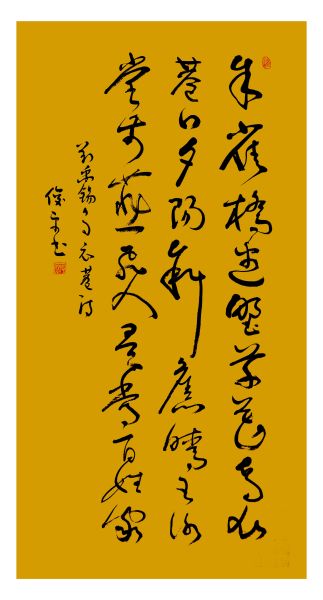 朱雀橋邊野草花烏衣
巷口夕陽斜舊時王謝
堂前燕飛入尋常百姓家
劉禹錫烏衣巷詩
俊平书